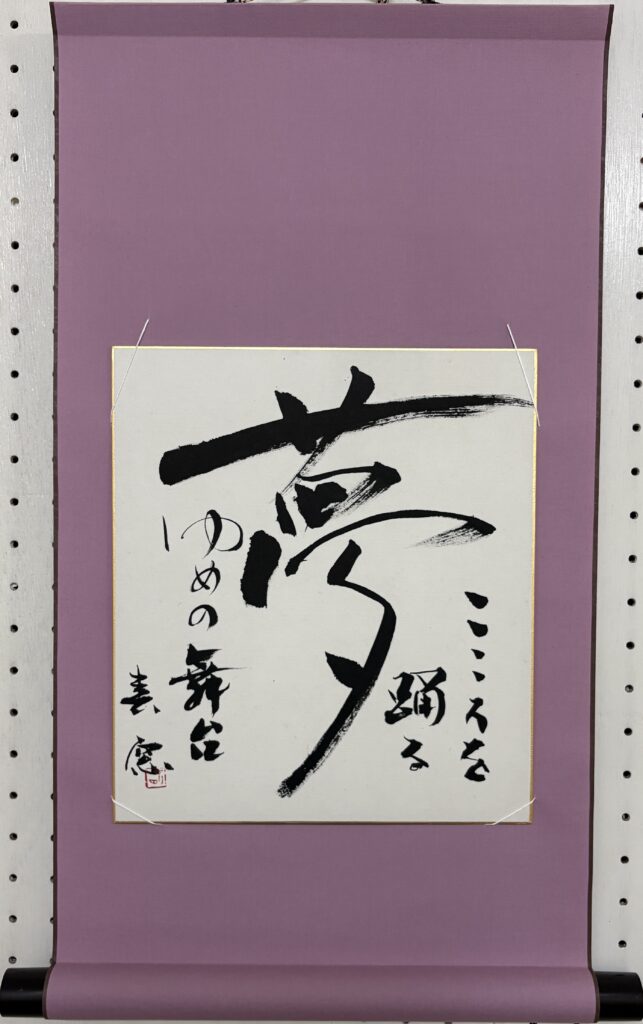 夢
こころを
踊る
ゆめの舞台
春窓